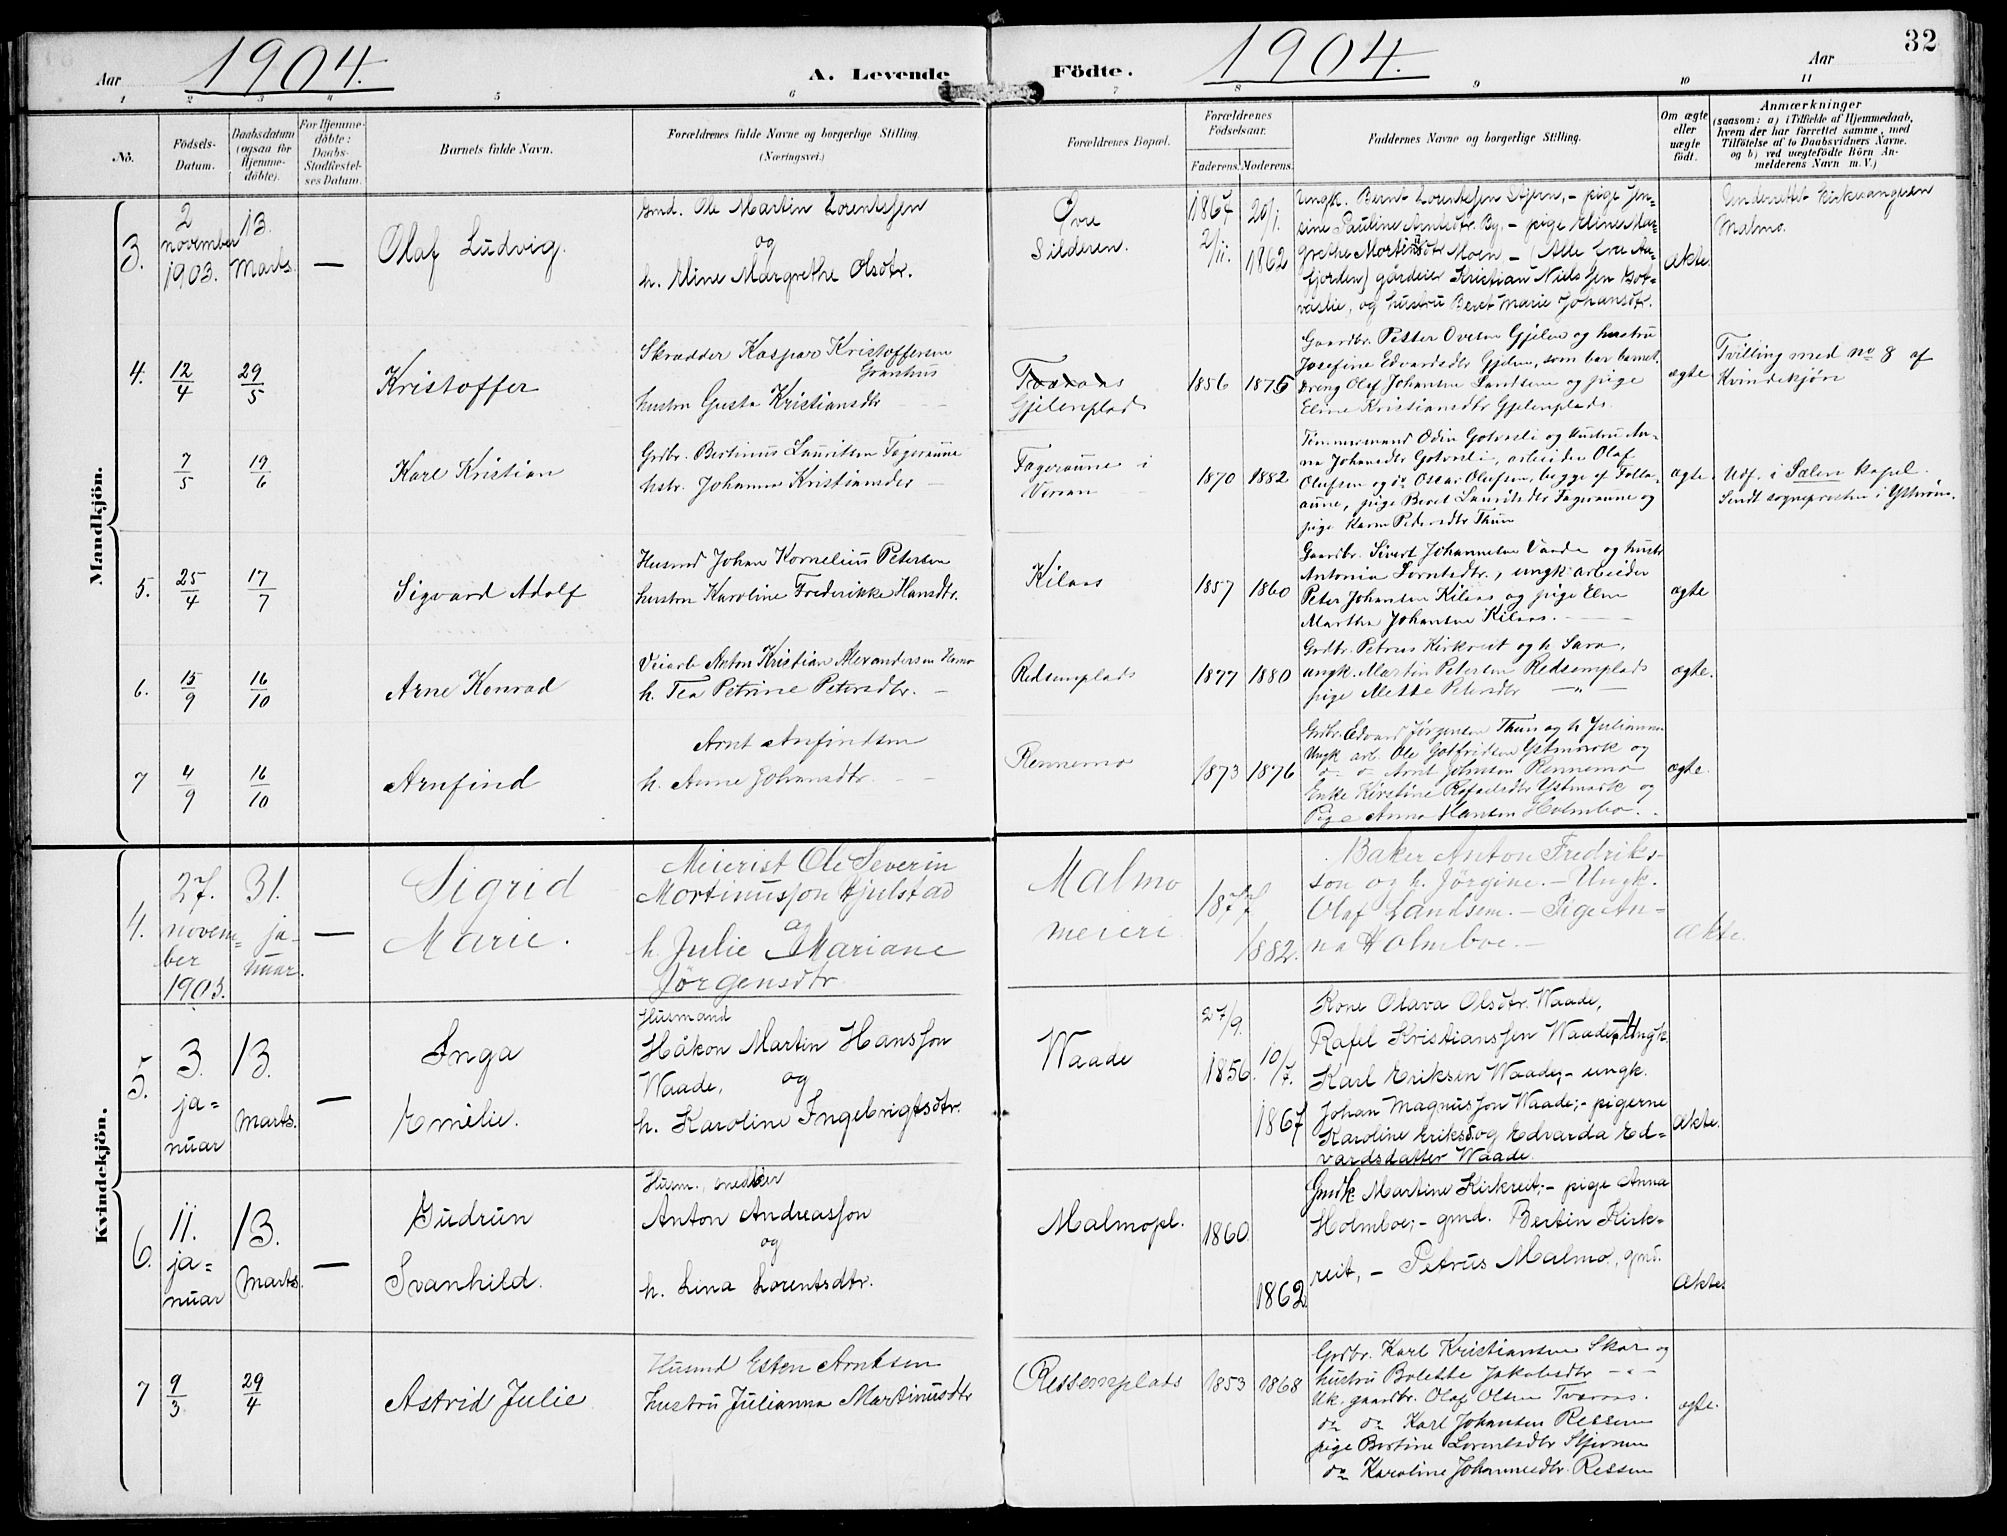 1904.
A. Levende
Aar
1 2 3 4 5 6
No.
Födsels-Datum.
Daabsdatum (ogsaa för Hjemme-döbte).
For Hjemme-döbte: Daabs-Stadfæstelses Datum.
Barnets fulde Navn.
Forældrenes fulde Navne og borgerlige Stilling.
(Næringsvei.)
Födte.
1904.
Aar
32
7 8 9 10 11
Forældrenes Bopæl.
Forældrenes Födselsaar.
Faderens. Moderens.
Faddernes Navne og borgerlige Stilling.
Om ægte eller uægte födt.
Anmærkninger
(saasom: a) i Tilfælde af Hjemmedaab,
hvem der har forrettet samme, med
Tilföielse af to Daabsvidners Navne.
og b) ved uægtefödte Börn An-
melderens Navn m. V.)
Mandkjön.
3. 2 november 1903. 13. Marts. —
Olaf Ludvig.
Gmd. Ole Martin Lorentssen
og
h. Eline Margrethe Olsdtr.
Øvre
Silderen.
1867 2/11. 20/1. 1862
Ungk. Bernt Lorentssen Stjern, - pige Jen-
sine Pauline Arntsdtr. By, - pige Eline Mar-
grethe Mortinsdtr. Moen -
fjorden) gårdeier Kristian Nielssen Got-
våslie, og hustru Beret Marie Johansdtr.
ækte
Underrettet kirkesangeren
Malmo.
4. 12/4 29/5
Kristoffer
Skrædder Kaspar Kristoffersen
Granhus
hustru Gusta Kristiansdtr
Tværaas
Gjelenplads
1856 1875
Gaardbr. Petter Ovesen Gjelen og hustru
Josefine Edvardsdtr Gjelen, som bar barnet.
Dreng Olaf Johansen Landsem og pige
Eline Kristiansdtr Gjelenplads.
ægte
Tvilling med no 8 af
Kvindekjön
7/5 19/6
Karl Kristian
Grdbr. Bertinus Lauritsen Fageraune
hstr. Johanna Kristiansdtr —
Fageraune i
Verran
1870 1882
Tömmermand Odin Gotvasli og hustru An-
na Johansdtr Gotvasli, arbeider Olaf
Olufsen og do Oscar Olufsen, begge af Folla-
aune, pige Beret Lauritsdtr Fageraune og
pige Karen Pedersdtr Thun
ægte.
Udf. i Sælen Kapel.
Sendt sognepresten i Ytterøen.
5. 25/4 17/7
Sigvard Adolf
Husmd Johan Kornelius Petersen
hustru Karoline Frederikke Hansdtr.
Kilaas
1857 1860
Gaardbr. Sivert Johannesen Vaade og hustr
Antonia Lorntsdtr., ungk arbeider
Peter Johansen Kilaas og pige Elen
Martha Johansen Kilaas.
ægte
6. 15/9 16/10
Arne Konrad
Veiarb Anton Kristian Alexandersen
h. Tea Petrine Petersdtr. —
Redsemplads
1877 1880
Grdbr. Petrus Kirkreit og h Sara,
ungk. Martin Petersen Redsemplads
pige Mette Petersdtr — " —
ægte.
7 4/9 16/10
Arnfind
Arnt Arnfindsen
h. Anne Johansdtr.
Rennemo
1873 1876
Grdbr. Edvard Jörgensen Thun og h Julianna
Ungk arb. Ole Gotfridsen Ystmark og
do do Arnt Johnsen Rennemo
Enke Kirstine Rafaelsdtr Ystmark og
Pige Anna Hansen Holmboe.
ægte.
Kvindekjön.
4. 27. november 1903. 31. januar. —
Sigrid
Marie.
Meierist Ole Severin
Mortinusson Hjulstad
og
h. Julie Mariane
Jörgensdtr.
Malmo
meieri
1877 1882.
Baker Anton Fredriks-
son og h. Jörgine. - Ungk.
Olaf Landsem. - Pige An-
na Holmboe. -
ækte.
5. 3. januar 13. Marts. —
Inga
Emelie.
Husmand
Håkon Martin Hansson
Waade, og
h. Karoline Ingebrigtsdtr.
Waade
27/9. 1856. 10/7. 1867
Kone Olava Olsdtr. Waade,
Rafel Kristianssen Waade, - Ungk.
Karl Eriksen Waade; - ungk.
Johan Magnusson Waade; - pigerne
Karoline Eriksd. og Edvarda Ed-
vardsdatter Waade.
ækte.
6. 11. januar 13. Marts. —
Gudrun
Svanhild.
Husm., snedker
Anton Andreasson
og
h. Lina Lorentsdtr.
Malmopl.
1860. 1862
Gmdk. Martine Kirkreit; - pige Anna
Holmboe; - gmd. Bertin Kirk-
reit, - Petrus Malmo, gmd.
ækte.
7 9/3 29/4
Astrid Julie
Husmd Esten Arntsen
hustru Julianna Martinusdtr
Ressemplads
1853 1868
Grdbr. Karl Kristiansen Skar og
hustru Bolette Jakobsdtr - " -
Uk. gaardbr. Olaf Olsen Tværaas.
do do Karl Johansen Ressem
pige Bertine Lorentsdtr Stjernen
do Karoline Johannesdtr. Ressem
ægte.